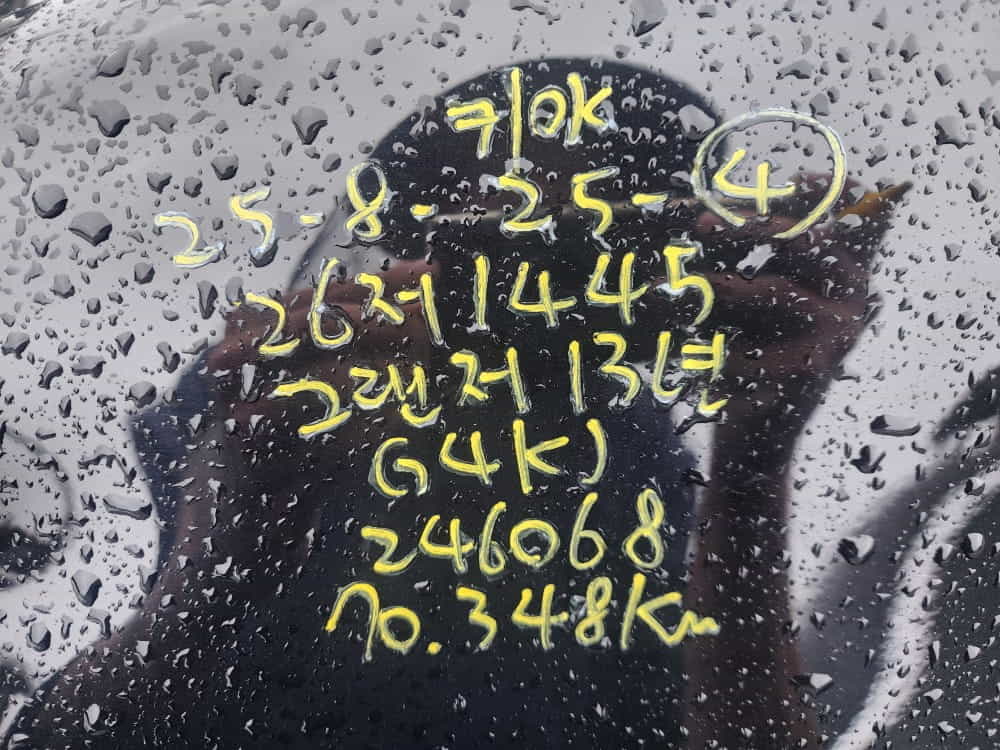 키OK
25-8-25-④
26저1445
그랜저 13년
(G4K)
246068
70.348Km